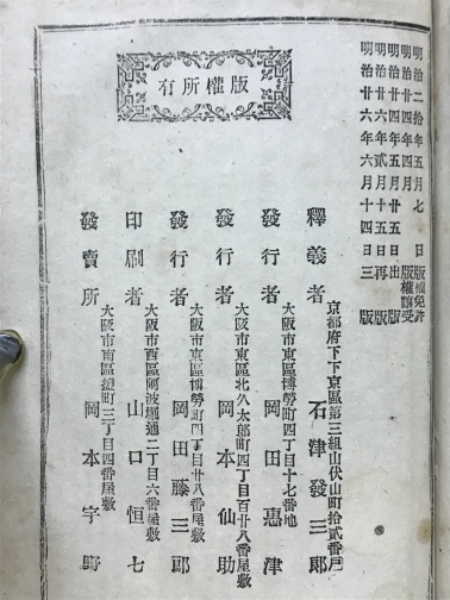 明治二拾年五月七日版權免許
明治廿四年四月版權讓受
明治廿四年五月廿五日出版
明治廿六年貳月十五日再版
明治廿六年六月十四日三版
有所權版
京都府下下京區第三組山伏山町拾貳番戶
釋義者 石津發三郎
大阪市東區博勞町四丁目十七番地
發行者 岡田惠津
大阪市東區北久太郎町四丁目百廿八番屋敷
發行者 岡本仙助
大阪市東區博勞町四丁目廿八番屋敷
發行者 岡田藤三郎
大阪市西區阿波堀通二丁目六番屋敷
印刷者 山口恒七
大阪市南區 町三丁目四番屋敷
發賣所 岡本宇野